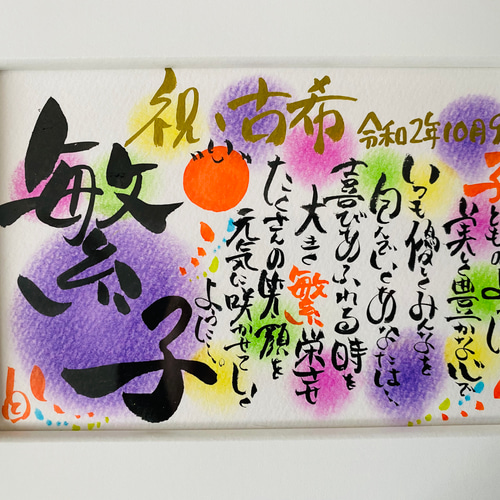 祝 古希
令和2年10月
子どものように
実に豊かな心で
いつも優しくみんなを
包んでいくあなたは…
喜びあふれる時を
大きく繁栄させ
たくさんの笑顔を
元気に咲かせていく
ように…
繁子